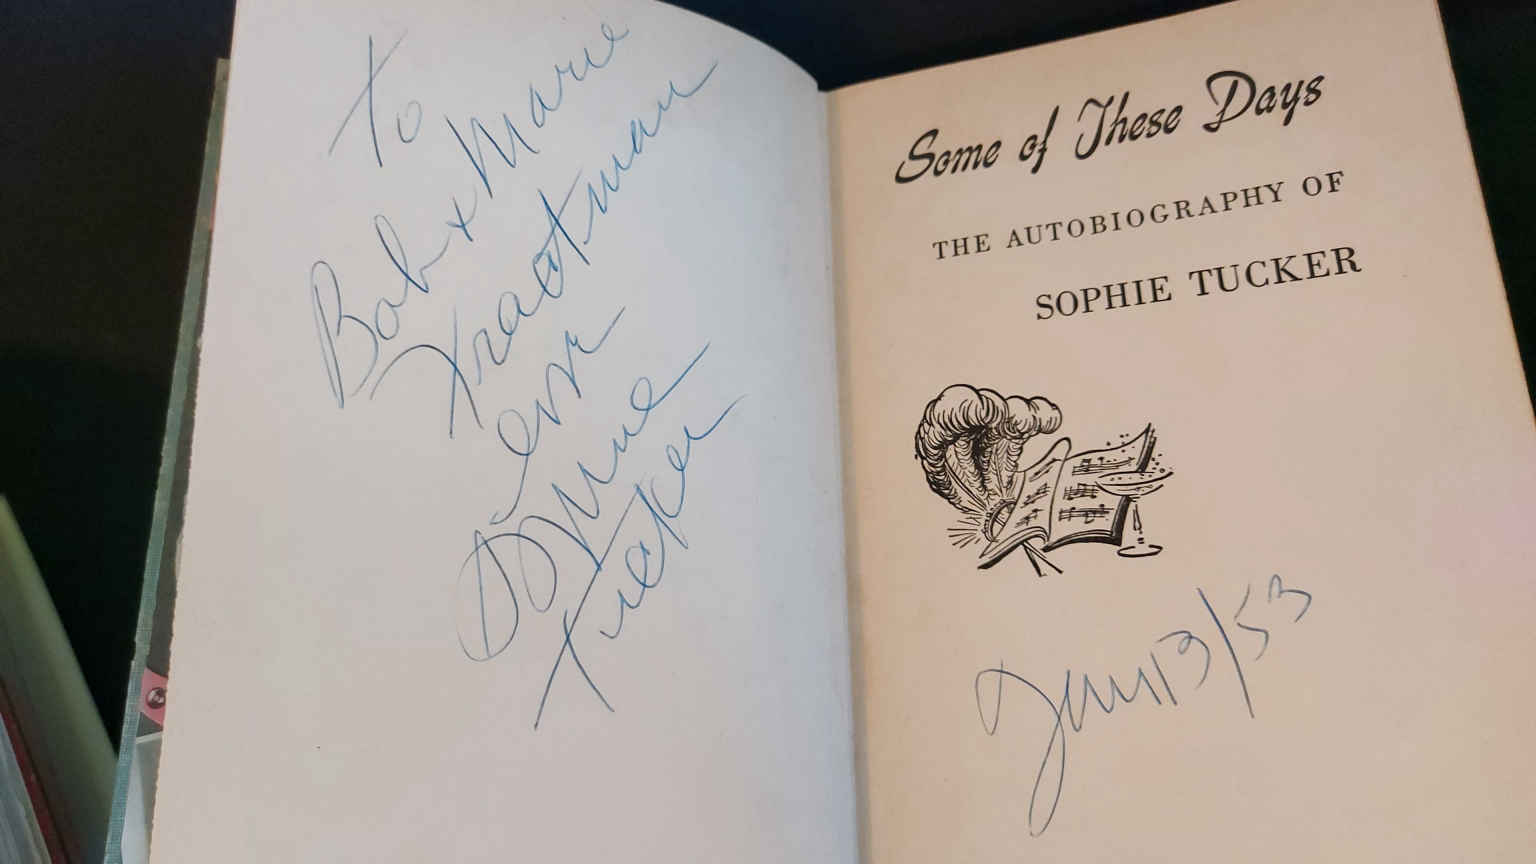 To
Bob + Marie
ever
Sophie
Tucker
Some of These Days
THE AUTOBIOGRAPHY OF
SOPHIE TUCKER
Jan 13/53